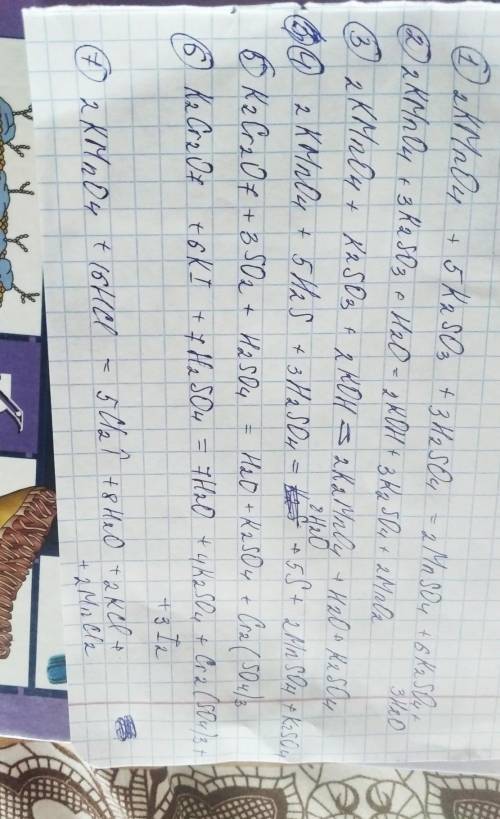 ① 2KMnO4 + 5K2SO3 + 3H2SO4 = 2MnSO4 + 6K2SO4 +
3H2O
② 2KMnO4 + 3K2SO3 + H2O = 2KOH + 3K2SO4 + 2MnO2
③ 2KMnO4 + K2SO3 + 2KOH = 2K2MnO4 + H2O + K2SO4
④ 2KMnO4 + 5H2S + 3H2SO4 = 2H2O + 5S + 2MnSO4 + K2SO4
⑤ K2Cr2O7 + 3SO2 + H2SO4 = H2O + K2SO4 + Cr2(SO4)3
⑥ K2Cr2O7 + 6KI + 7H2SO4 = 7H2O + 4K2SO4 + Cr2(SO4)3 +
+ 3I2
⑦ 2KMnO4 + 16HCl = 5Cl2↑ + 8H2O + 2KCl +
+ 2MnCl2